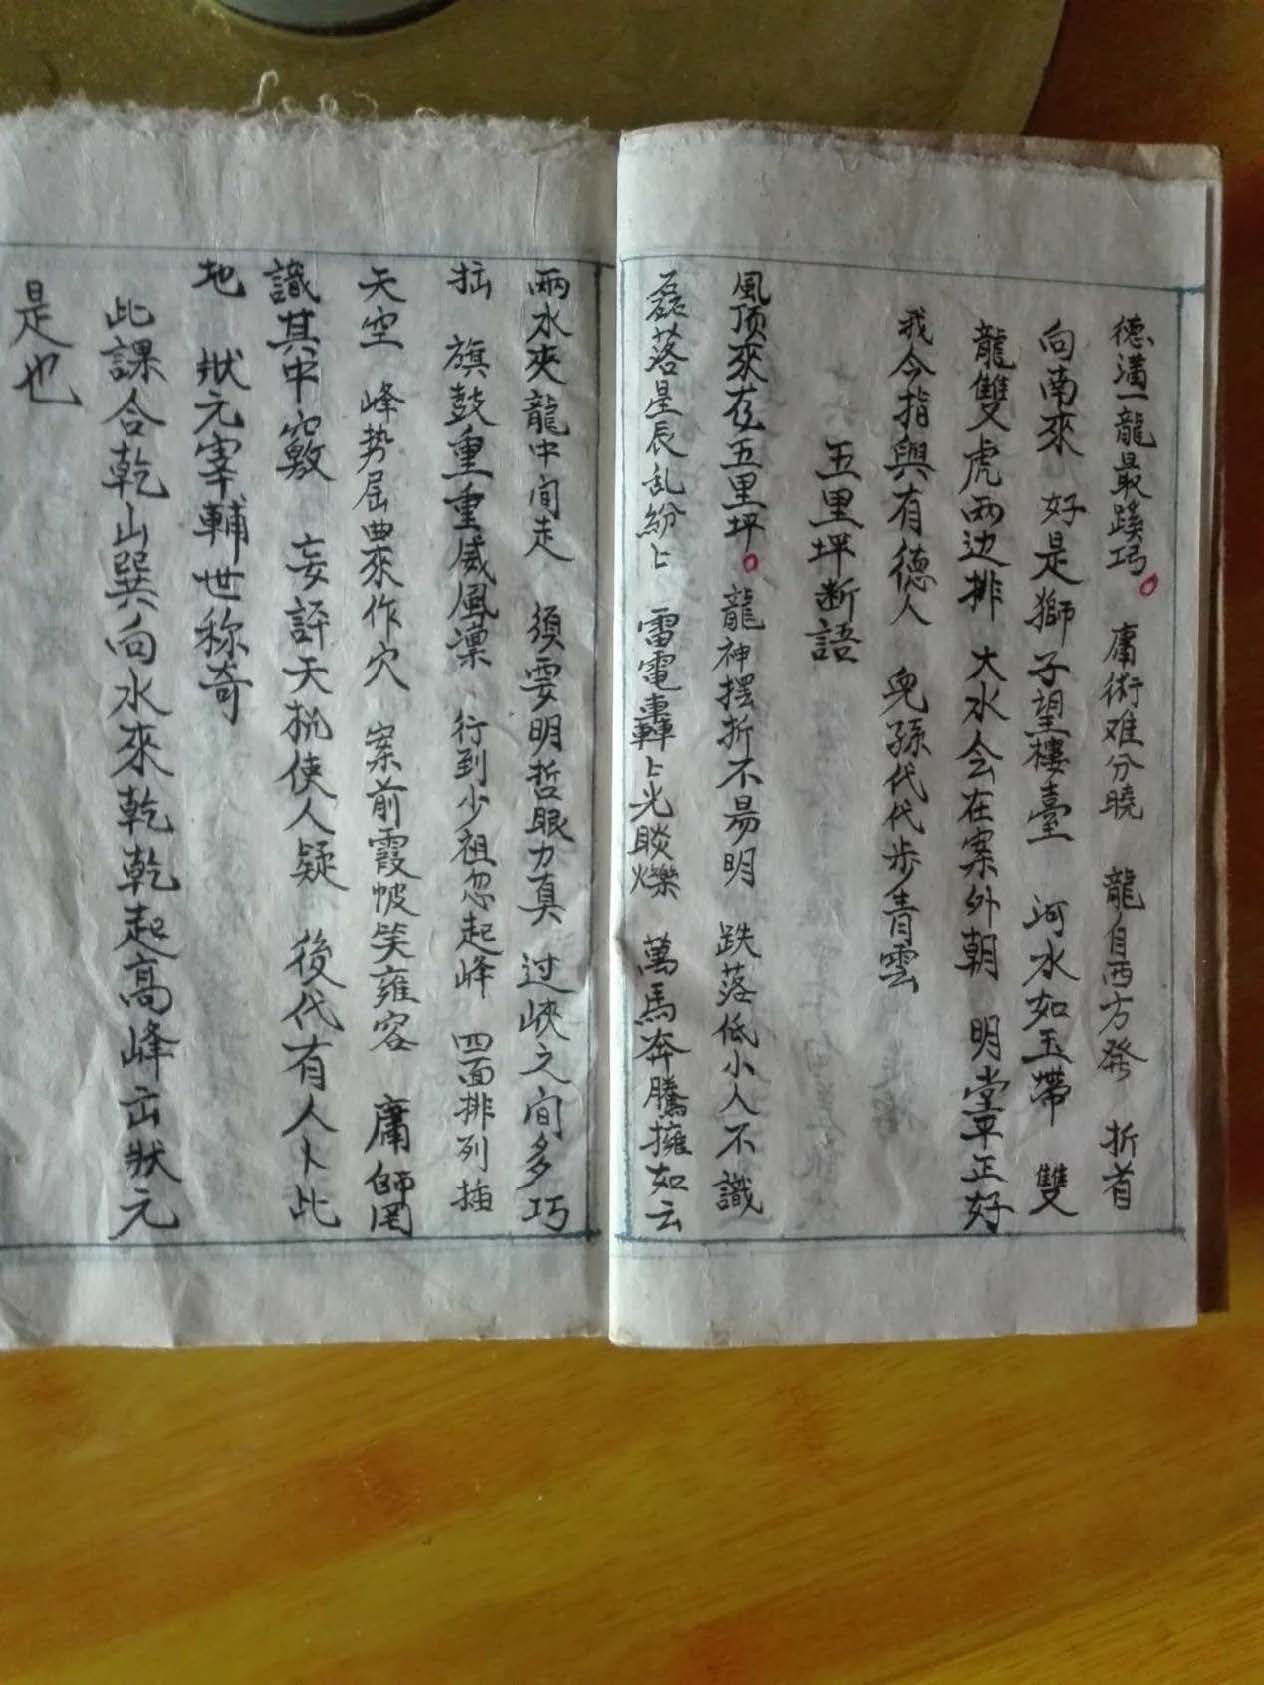 德溝一龍最蹊巧。 庸術难分曉 龍自西方發 折首
向南來 好是獅子望樓臺 河水如玉帶 雙
龍雙虎两边排 大水会在案外朝 明堂平正好
我今指與有德人 兒孫代代步青雲
五里坪断語
風顶來在五里坪。龍神摆折不易明 跌落低小人不識
磊落星辰乱紛々 雷電轟々光睒爍 萬馬奔騰擁如云
兩水夾龍中间走 須要明哲眼力真 过峽之间多巧
拙 旗鼓重重威風凜 行到少祖忽起峰 四面排列插
天空 峰势屈曲來作穴 案前霞帔笑雍容 庸師罔
識其中竅 妄評天机使人疑 後代有人卜此
地 狀元宰輔世称奇
此課合乾山巽向水來乾乾起高峰出狀元
是也